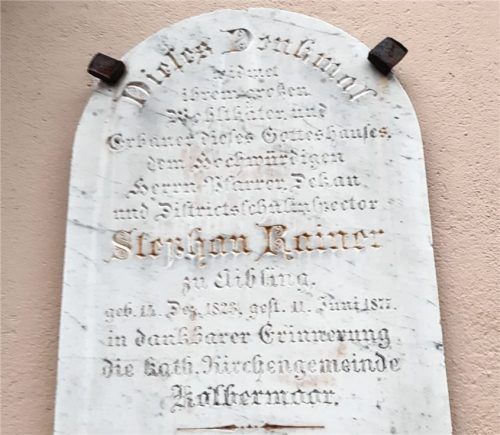 Dieses Denkmal
widmet
ihrem großen
Wohlthäter und
Erbauer dieses Gotteshauses,
dem Hochwürdigen
Herrn Pfarrer, Dekan
und Districtsschulinspector
Stephan Rainer
zu Aibling,
geb. 14. Dez. 1823. gest. 11. Juni 1877.
in dankbarer Erinnerung
die kath. Kirchengemeinde
Kolbermoor.